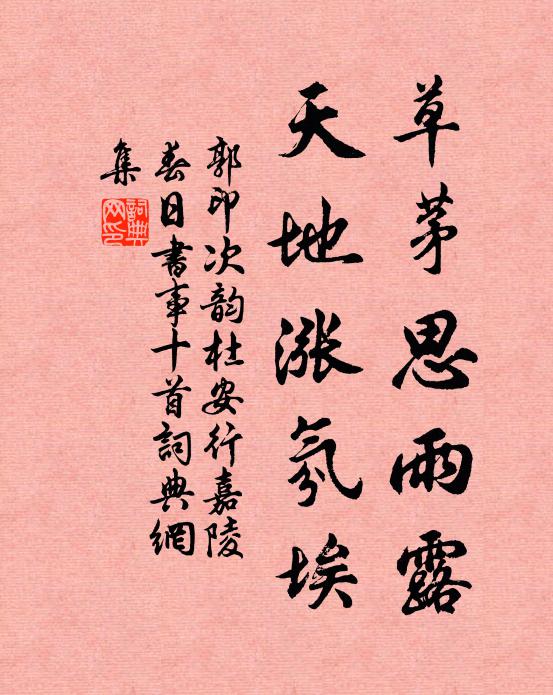 草茅思雨露
天地漲氛埃
郭印次韵杜安行嘉陵
春日書事十首詞典網
集
詞典
网印